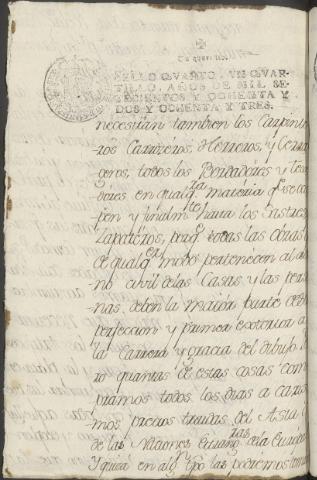 SELLO QVARTO, VN QVAR-
TILLO, AÑOS DE MIL SE-
TECIENTOS Y OCHENTA Y
DOS Y OCHENTA Y TRES.
necesitan tambien los Carpinte
ros Carroceros, Herreros, y Cerra
geros, todos los Bordadores y texe
dores en qualq.ra materia q.e se ocu
pen y finalm.te hasta los Sastres,
Zapateros, porq.e todas las obras
de qualq.er modo pertenecen al
no civil de las Casas, y las perso
nas, deben la mayor parte de su
perfeccion y primera
la Carrera y gracia del dibujo.
ro quantas de estas cosas com
pramos todos los dias a carisi
mos precios traidas del Asia
de las Naciones de la Europa
Y quizá en alg.n tpo las podremos